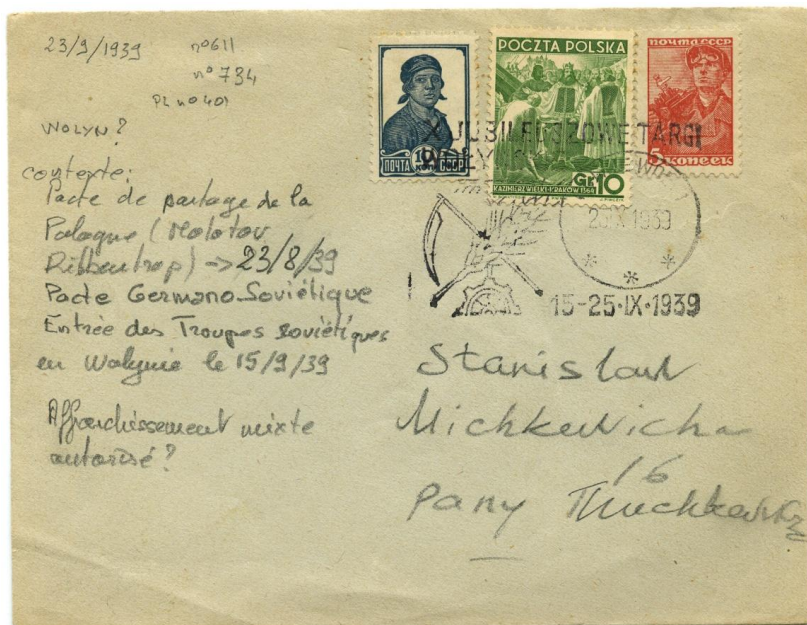 23/9/1939 n°611
n° 734
PL n° 401
WOLYN?
contexte:
Pacte de partage de la
Pologne (Molotov
Ribbentrop) -> 23/8/39
Pacte Germano-Soviétique
Entrée des Troupes soviétiques
en Wolynie le 15/9/39
Affranchissement mixte
autorisé?
ПОЧТА 10 СССР
POCZTA POLSKA
KAZIMIERZ WIELKI-KRAKÓW 1364
GR 10
ПОЧТА СССР
5 КОПЕЕК
X JUBILEUSZOWE TARGI
IX 1939
15-25·IX·1939
Stanislaw
Michkevicha
16
pany